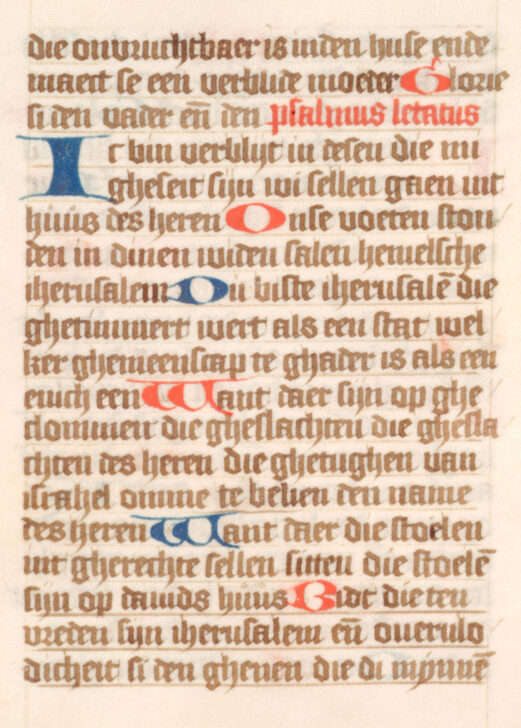 die onvruchtbaer is inden huse ende
maect se een verblide moeder Glorie
si den vader en̄ den psalmus letatus
Ic bin verblijt in desen die mi
gheseit sijn wi sellen gaen int
huus des heren Onse voeten ston
den in dinen widen salen hemelsche
iherusalem Du biste iherusalē die
ghetimmert wert als een stat wel
ker ghemeenscap te gader is als een
euich een Want daer sijn op ghe
clommen die gheslachten die ghesla
chten des heren die ghetughen van
israhel omme te belien den name
des heren Want daer die stoelen
int gherechte sellen sitten die stoelē
sijn op dauids huus Bidt die ten
vreden sijn iherusalem en̄ ouerulo
dicheit si den ghenen die di mynnē